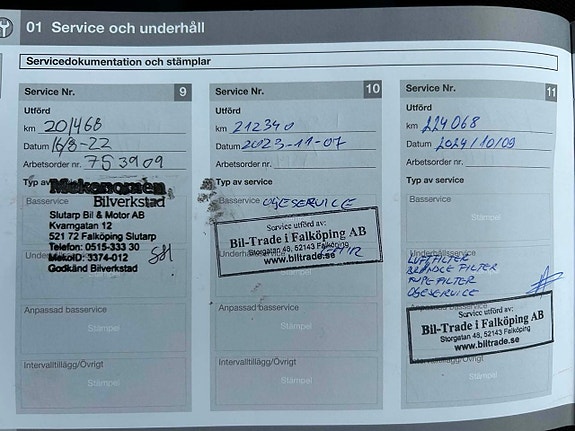 01 Service och underhåll
Servicedokumentation och stämplar
Service Nr. 9
Utförd
km 201468
Datum 16/8-22
Arbetsorder nr. 753909
Typ av service
Mekonomen
Bilverkstad
Slutarp Bil & Motor AB
Kvarngatan 12
521 72 Falköping Slutarp
Telefon: 0515-333 30
MekoID: 3374-012
Godkänd Bilverkstad
Anpassad basservice
Stämpel
Intervalltillägg/Övrigt
Stämpel
Service Nr. 10
Utförd
km 212340
Datum 2023-11-07
Arbetsorder nr.
Typ av service
Basservice OLJESERVICE
Service utförd av:
Bil-Trade i Falköping AB
Storgatan 48, 52143 Falköping
www.biltrade.se
Anpassad basservice
Stämpel
Intervalltillägg/Övrigt
Stämpel
Service Nr. 11
Utförd
km 224068
Datum 2024/10/09
Arbetsorder nr.
Typ av service
Basservice
Stämpel
Underhållsservice
LUFTFILTER
BRÄNSLEFILTER
KUPEFILTER
OLJESERVICE
Service utförd av:
Bil-Trade i Falköping AB
Storgatan 48, 52143 Falköping
www.biltrade.se
Intervalltillägg/Övrigt
Stämpel